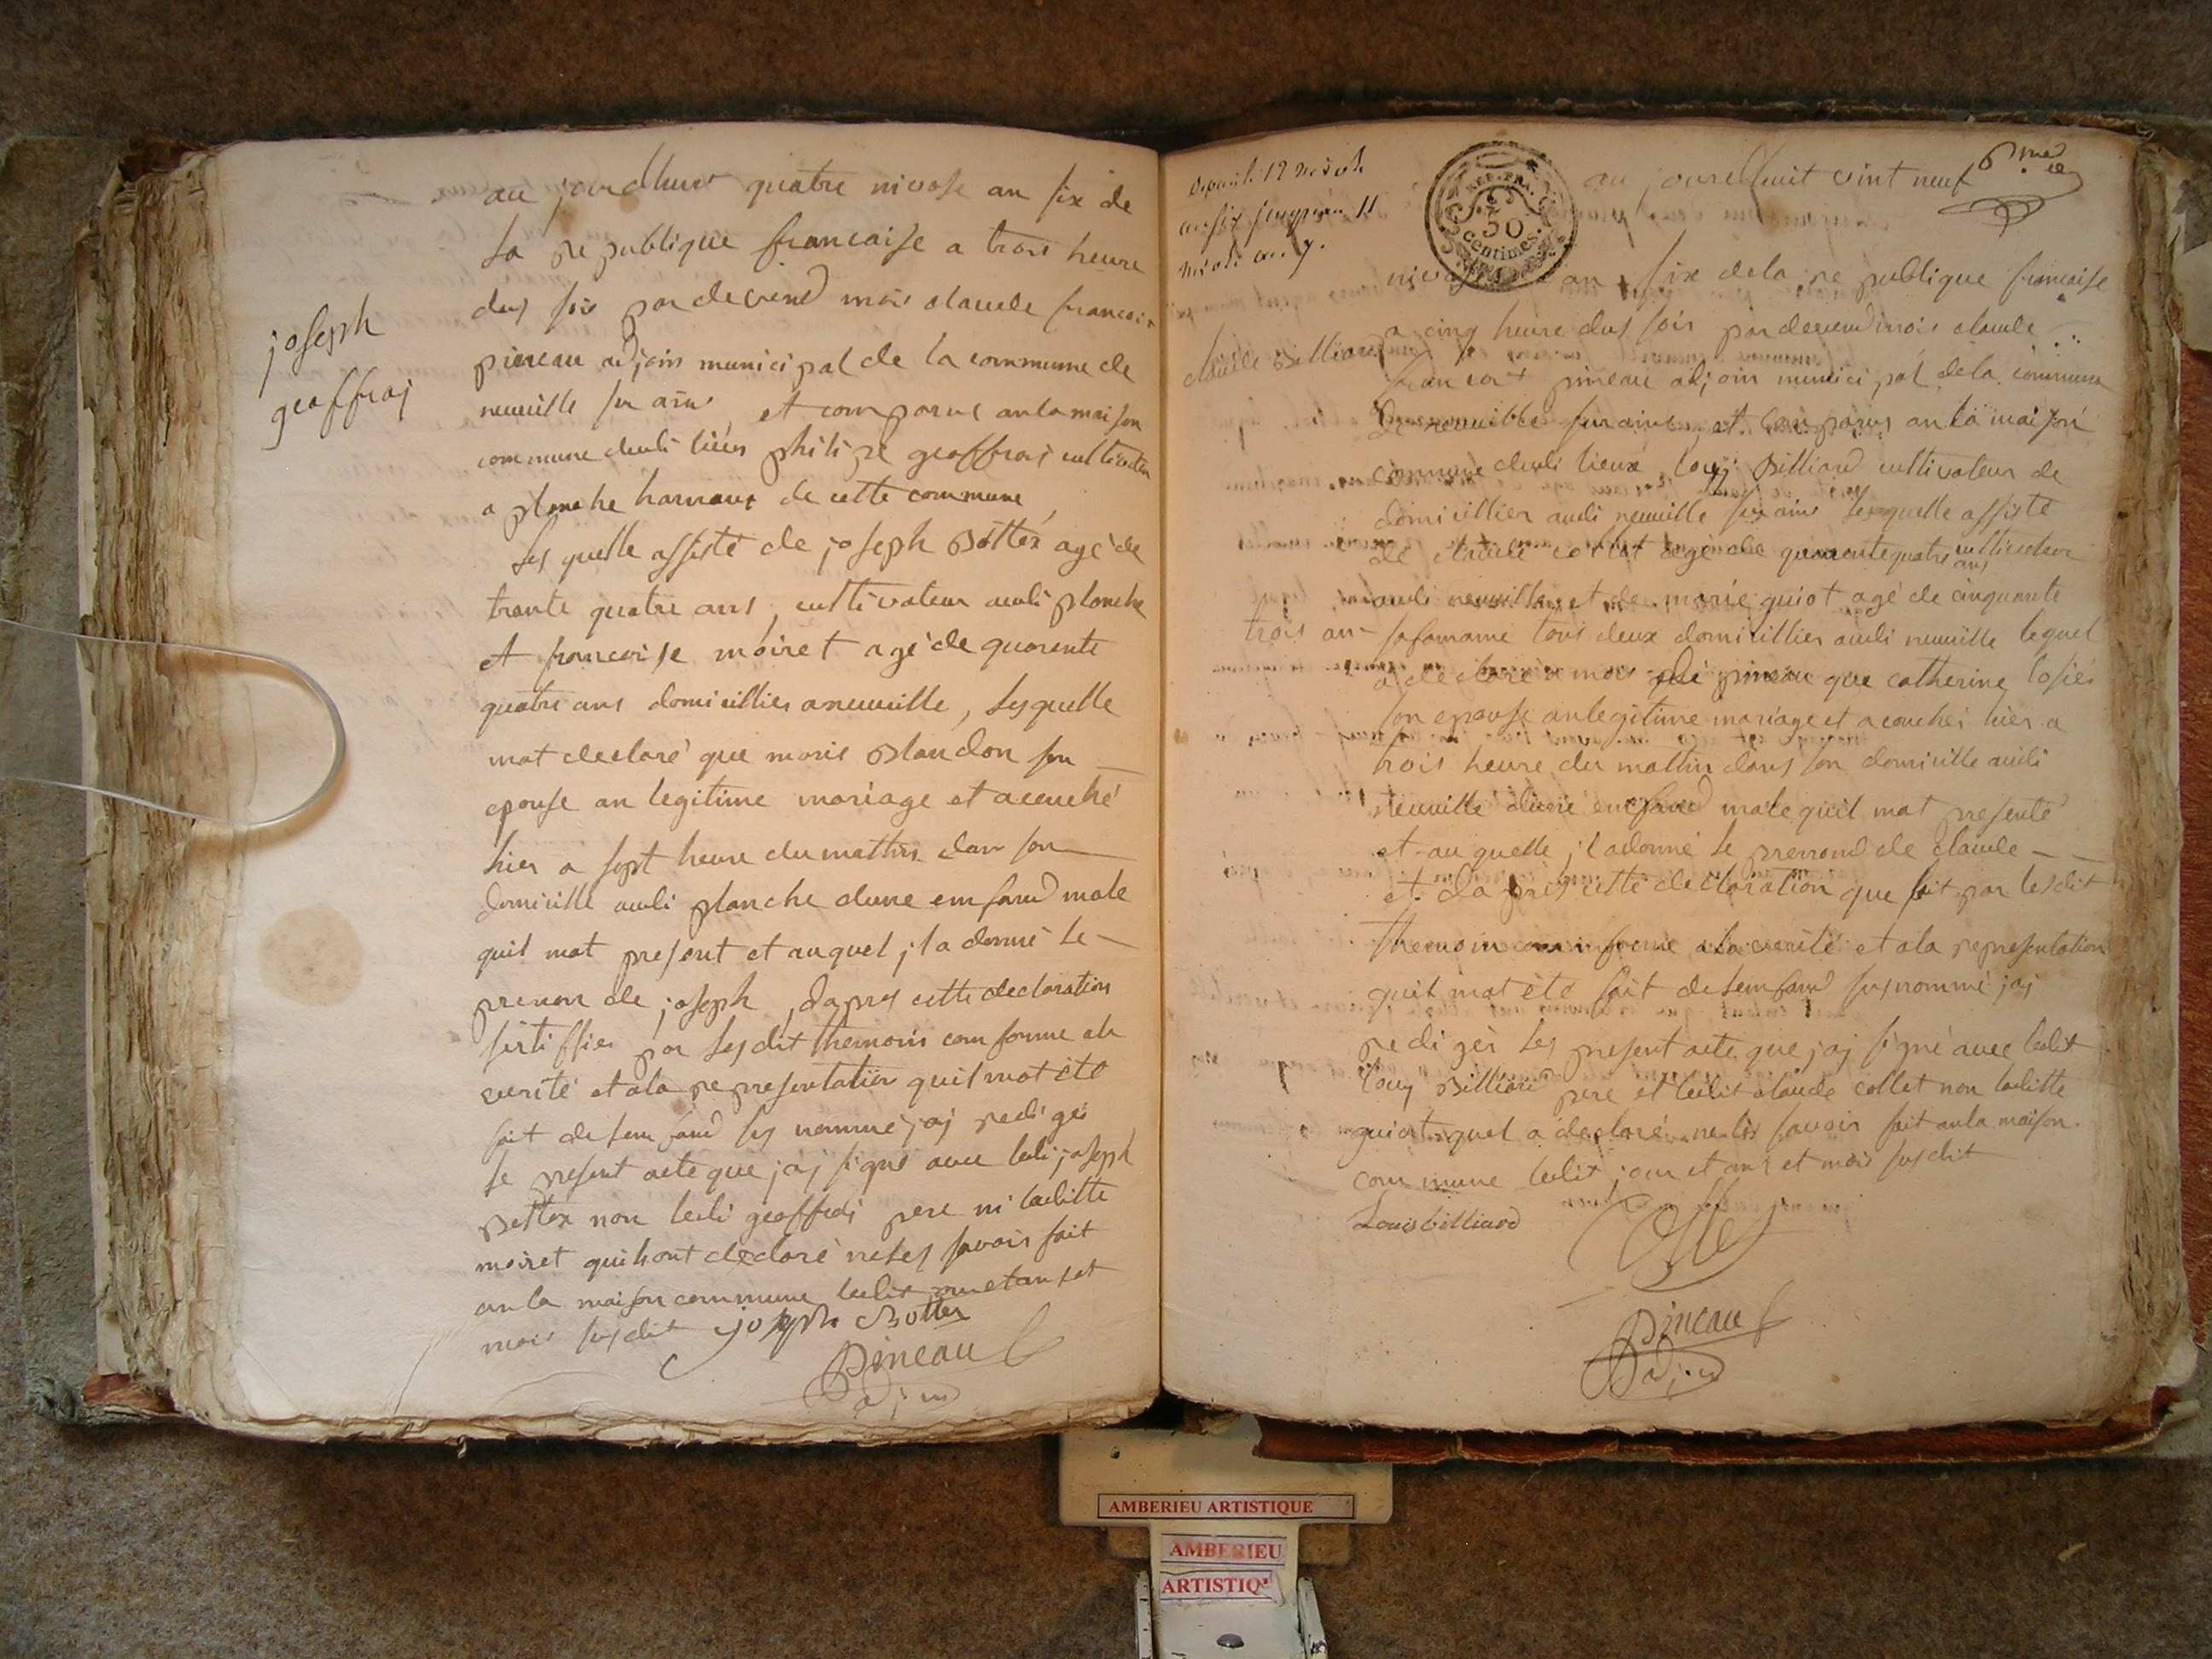 au jourdhuis quatre nivose an six de
la republique francaise a trois heure
dus soir par devend mois claude francois
pineau adjoin municipal de la commune de
neuville sur ain et comparus an la maison
commune dudi lieus philipe geoffrai cultivateur
a planche de cette commune
joseph
geoffraj
Les quelle assisté de joseph Bottex agé de
trante quatre ans cultivateur audi planche
et francoise moiret agé de quarente
quatre ans domicillies a neuville, lesquelle
mat declaré que marie Blandon son
epouse an legitime mariage et acouché
hier a sept heure du mattin dan son
domicille audi planche dune emfand male
quil mat present et auquel jl a donné le
prenon de joseph dapres cette declaration
sertiffies par lesdit themoins comforme ala
verité et ala representation quil mat été
fait de lemfand sus nommé jaj redigés
le present acte que jaj signé avec ledi joseph
Bottex non ledi geoffrai pere ni laditte
moiret quihont declaré neles savoir fait
an la maison commune ledit jour et an et
mois susdit joseph Bottex
Pineau
adjoin
Depuis le 12 nivose
an six jusquau 11
nivose an 7.
REP. FRA.
50
centimes.
au jourdhuit vint neuf
nivose an six dela republique francaise
a cinq heure dus soir par devend mois claude
claude Billiard
francois pineau adjoin municipal dela commune
de neuville sur ain et comparus an la maison
commune dudi lieux louis Billiard cultivateur de
domicillier audi neuville sur ain lesquelle assisté
de claude collet agé de quarente quatre ans cultivateur
audi neuville et de marie guiot agé de cinquante
trois an sa famame tous deux domicillier audi neuville lequel
a declaré a mois dit pineau que catherine
son epouse an legitime mariage et acouchés hier a
trois heure du mattin dans son domicille audi
neuville dune emfand male quil mat presenté
et au quelle jl adonné le prenond de claude
et dapres cette declaration que fait par lesdit
themoin comforme ala verité et ala representation
quil mat été fait de lemfand susnommé jaj
redigér les present acte que jaj signé avec ledit
louis Billiard pere et ledit claude collet non laditte
guiot quel a declaré ne les savoir fait an la maison
commune ledit jour et ans et mois susdit
Louis billiard
Pineau
adjoin
AMBERIEU ARTISTIQUE
AMBERIEU
ARTISTIQ